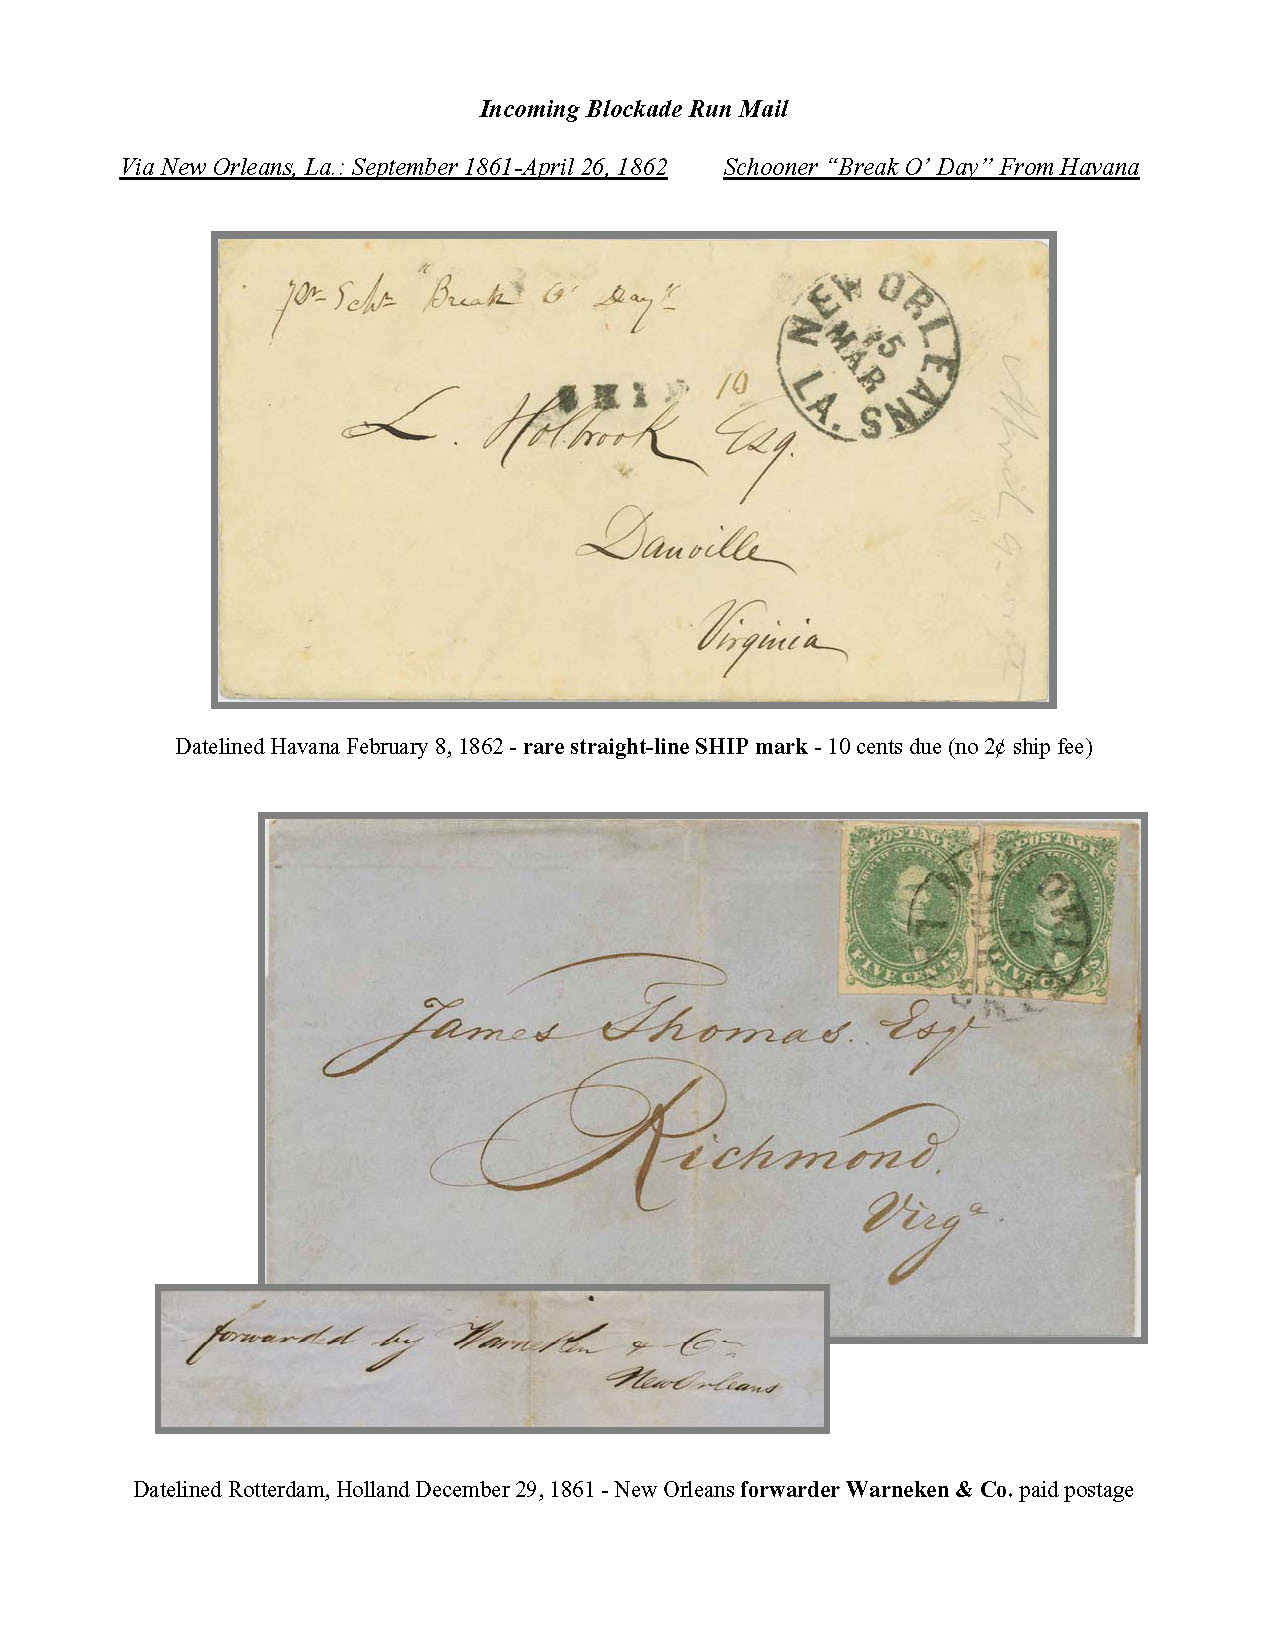 Incoming Blockade Run Mail
Via New Orleans, La.: September 1861-April 26, 1862 Schooner “Break O’ Day” From Havana
pr Schr "Break O' Day"
NEW ORLEANS LA.
15
MAR
SHIP 10
L. Holbrook Esq.
Danville
Virginia
Datelined Havana February 8, 1862 - rare straight-line SHIP mark - 10 cents due (no 2¢ ship fee)
POSTAGE POSTAGE
15
MAR
FIVE CENTS FIVE CENTS
James Thomas. Esqr
Richmond.
Virga.
forwarded by Warneken & Co
New Orleans
Datelined Rotterdam, Holland December 29, 1861 - New Orleans forwarder Warneken & Co. paid postage